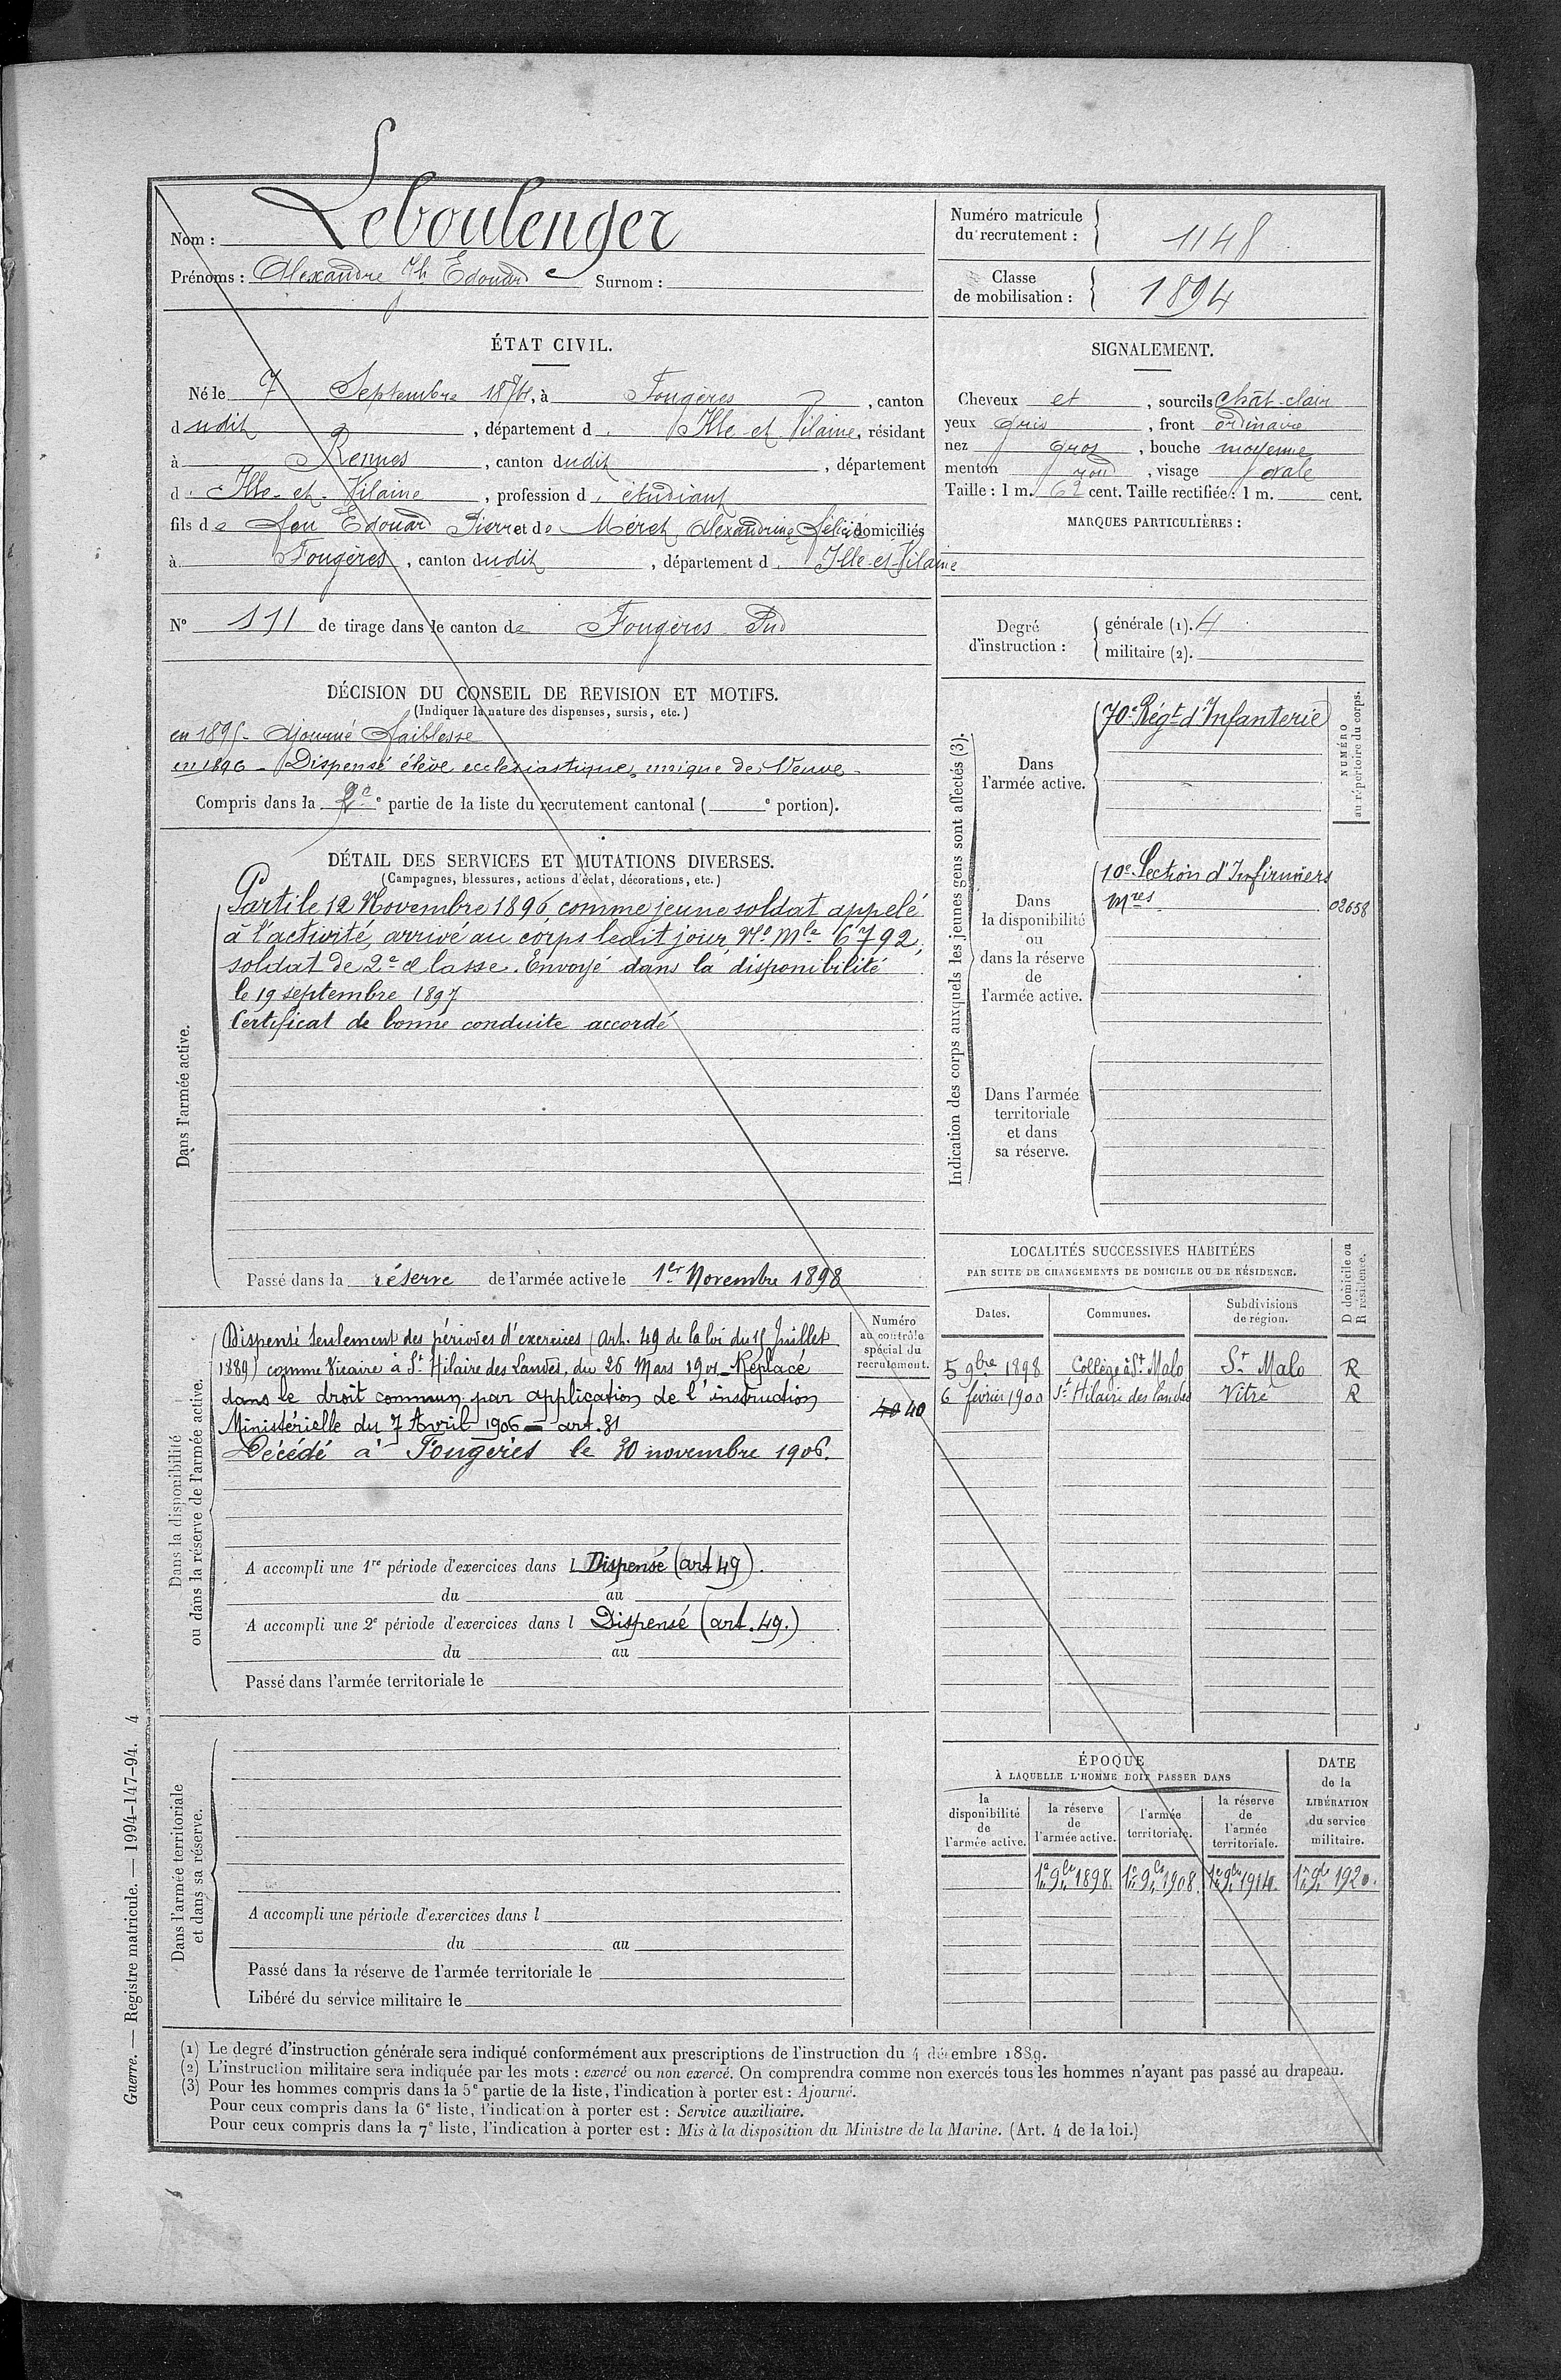 Nom : Leboulenger
Prénoms : Alexandre Jh Edouard Surnom :
Numéro matricule du recrutement : 1148
Classe de mobilisation : 1894
ÉTAT CIVIL.
Né le 7 Septembre 1874, à Fougères, canton
dudit, département d'Ille-et-Vilaine, résidant
à Rennes, canton dudit, département
d'Ille-et-Vilaine, profession d'étudiant
fils de feu Edouard Pierre et de Méret Alexandrine Félicité domiciliés
à Fougères, canton dudit, département d'Ille-et-Vilaine
N° 111 de tirage dans le canton de Fougères Sud
SIGNALEMENT.
Cheveux et, sourcils chât-clair
yeux gris, front ordinaire
nez gros, bouche moyenne
menton rond, visage ovale
Taille : 1 m. 62 cent. Taille rectifiée : 1 m. cent.
MARQUES PARTICULIÈRES :
Degré d'instruction : générale (1). 4
militaire (2).
DÉCISION DU CONSEIL DE REVISION ET MOTIFS.
(Indiquer la nature des dispenses, sursis, etc.)
en 1895 - Ajourné faiblesse
en 1896 - Dispensé élève ecclésiastique, unique de Veuve -
Compris dans la 2e e partie de la liste du recrutement cantonal ( e portion).
DÉTAIL DES SERVICES ET MUTATIONS DIVERSES.
(Campagnes, blessures, actions d'éclat, décorations, etc.)
Dans l'armée active.
Parti le 12 Novembre 1896 comme jeune soldat appelé
à l'activité, arrivé au corps ledit jour, No Mle 6792,
soldat de 2e classe. Envoyé dans la disponibilité
le 19 septembre 1897
Certificat de bonne conduite accordé
Passé dans la réserve de l'armée active le 1er Novembre 1898
Dans la disponibilité
ou dans la réserve de l'armée active.
Dispensé seulement des périodes d'exercices (Art. 49 de la loi du 15 Juillet
1889) comme Vicaire à St Hilaire des Landes, du 26 Mars 1901 - Replacé
dans le droit commun par application de l'instruction
Ministérielle du 7 Avril 1906 - art. 81
Décédé à Fougères le 30 novembre 1906.
A accompli une 1re période d'exercices dans l Dispensé (art 49).
du au
A accompli une 2e période d'exercices dans l Dispensé (art. 49.)
du au
Passé dans l'armée territoriale le
Numéro
au contrôle
spécial du
recrutement.
40 40
Dans l'armée territoriale
et dans sa réserve.
A accompli une période d'exercices dans l
du au
Passé dans la réserve de l'armée territoriale le
Libéré du service militaire le
Indication des corps auxquels les jeunes gens sont affectés (3).
NUMÉRO
au répertoire du corps.
Dans
l'armée active.
70e Régt d'Infanterie
Dans
la disponibilité
ou
dans la réserve
de
l'armée active.
10e Section d'Infirmiers
Mres
02658
Dans l'armée
territoriale
et dans
sa réserve.
LOCALITÉS SUCCESSIVES HABITÉES
PAR SUITE DE CHANGEMENTS DE DOMICILE OU DE RÉSIDENCE.
D domicile ou
R résidence.
Dates. Communes. Subdivisions de région.
5 9bre 1898 Collège à St Malo St Malo R
6 février 1900 St Hilaire des Landes Vitré R
ÉPOQUE
À LAQUELLE L'HOMME DOIT PASSER DANS
la disponibilité de l'armée active.
la réserve de l'armée active.
l'armée territoriale.
la réserve de l'armée territoriale.
DATE de la LIBÉRATION du service militaire.
1er 9bre 1898 1er 9bre 1908 1er 9bre 1914 1er 9bre 1920.
(1) Le degré d'instruction générale sera indiqué conformément aux prescriptions de l'instruction du 4 décembre 1889.
(2) L'instruction militaire sera indiquée par les mots : exercé ou non exercé. On comprendra comme non exercés tous les hommes n'ayant pas passé au drapeau.
(3) Pour les hommes compris dans la 5e partie de la liste, l'indication à porter est : Ajourné.
Pour ceux compris dans la 6e liste, l'indication à porter est : Service auxiliaire.
Pour ceux compris dans la 7e liste, l'indication à porter est : Mis à la disposition du Ministre de la Marine. (Art. 4 de la loi.)
Guerre. — Registre matricule. — 1994-147-94. 4